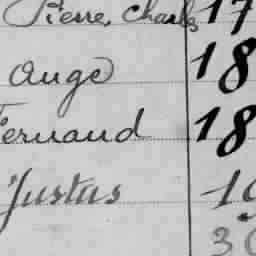 Pierre, Charles 17
Ange 18
Fernand 18
Justus 19
30